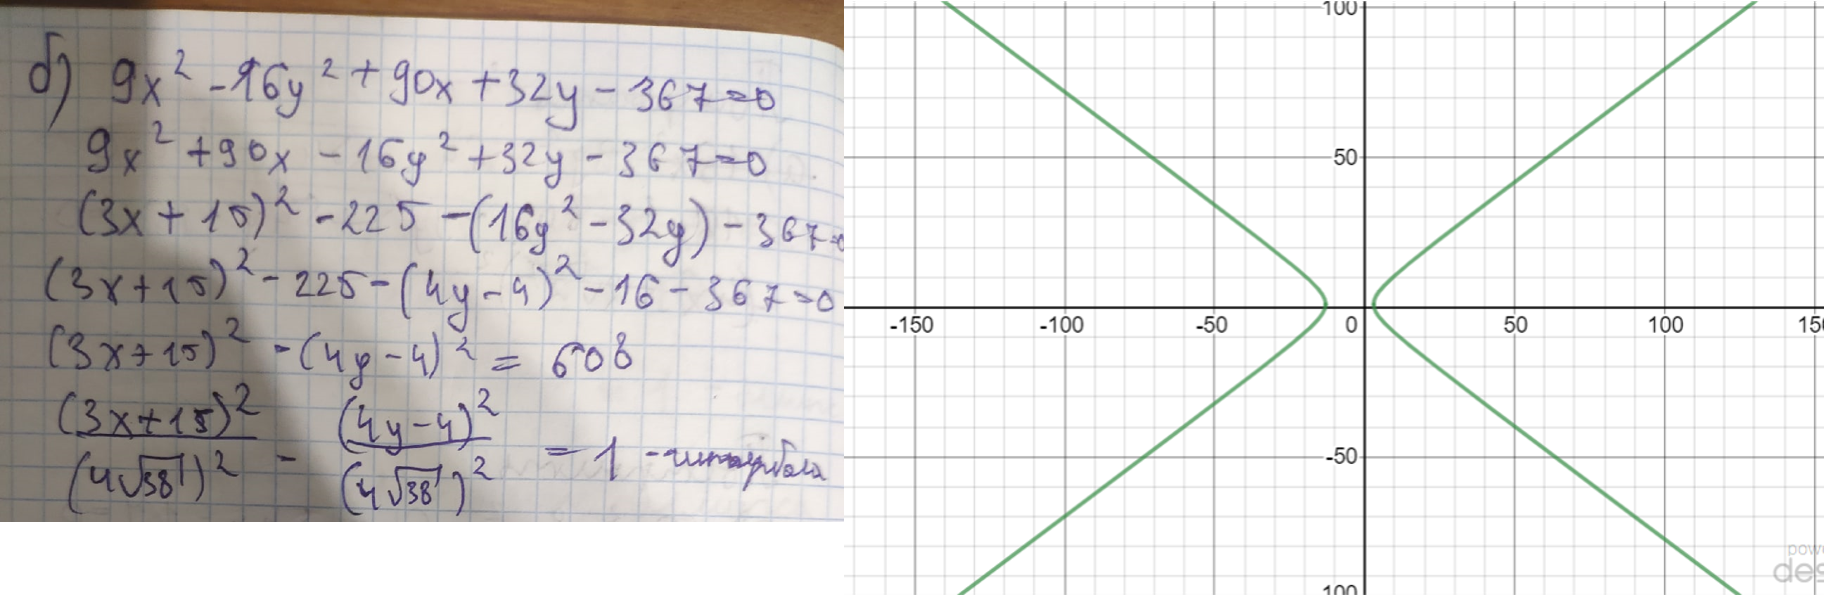 б) 9x² - 16y² + 90x + 32y - 367 = 0
9x² + 90x - 16y² + 32y - 367 = 0
(3x + 15)² - 225 - (16y² - 32y) - 367 = 0
(3x + 15)² - 225 - (4y - 4)² - 16 - 367 = 0
(3x + 15)² - (4y - 4)² = 608
(3x + 15)² / (4√38)² - (4y - 4)² / (4√38)² = 1 - гипербола
100
50
-150 -100 -50 0 50 100 150
-50
100
powe
des